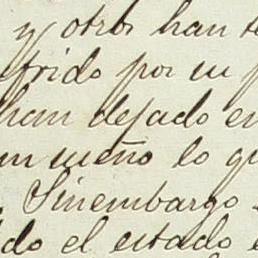 y otros han
frido por su
han dejado en
un sueño lo qu
Sinembargo
do el estado